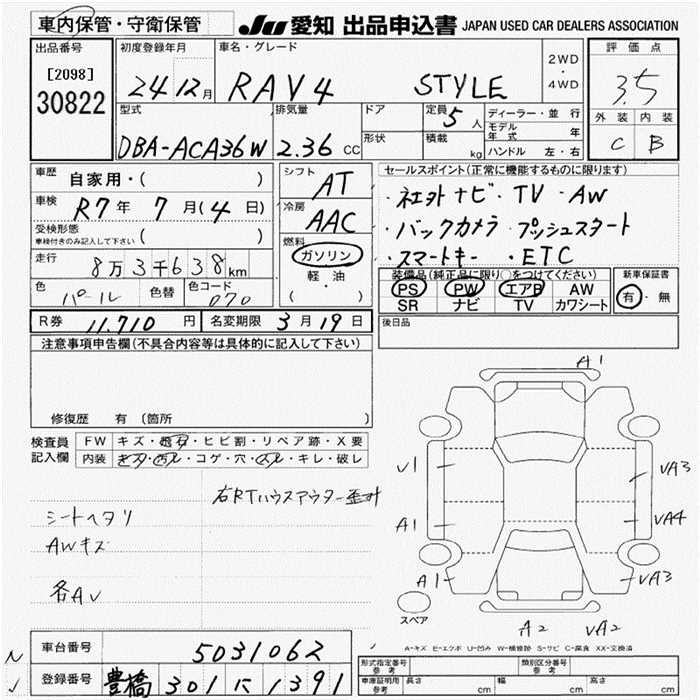 車内保管・守衛保管
JU 愛知 出品申込書 JAPAN USED CAR DEALERS ASSOCIATION
出品番号
[2098]
30822
初度登録年月
24 12月
車名・グレード
RAV4 STYLE
2WD
・
4WD
評価点
3.5
外装 内装
C B
型式
DBA-ACA36W
排気量
2.36 CC
ドア
形状
定員 5人
積載 kg
ディーラー・並行
モデル年式 年
ハンドル 左・右
車歴 自家用・( )
車検 R7年 7月(4日)
受検形態
車検付きのみ記入して下さい ( )
走行 8万3千638km
色 パール 色替 色コード 070
シフト AT
冷房 AAC
燃料
ガソリン
軽・油
( )
セールスポイント(正常に機能するものに限ります)
・社外ナビ・TV・AW
・バックカメラ プッシュスタート
・スマートキー ・ETC
装備品(純正品に限り○をつけてください)
PS PW エアB AW
SR ナビ TV カワシート
新車保証書
有・無
R券 11,710円 名変期限 3月19日
後日品
注意事項申告欄(不具合内容等は具体的に記入して下さい)
修復歴 有 〔箇所 〕
検査員記入欄
FW キズ・飛石・ヒビ割・リペア跡・X要
内装 キズ・汚レ・コゲ・穴・スレ・キレ・破レ
右RTハウスアウター歪ミ
シートヘタリ
AWキズ
各AV
A1
V1
VA3
A1
VA4
A1
VA3
スペア
A2 VA2
A-キズ E-エクボ U-凹み W-補修跡 S-サビ C-腐食 XX-交換済
車台番号 5031062
登録番号 豊橋 301 に 1391
形式指定番号
参考
類別区分番号
参考
車庫証明用
参考
長さ cm 幅 cm 高さ cm